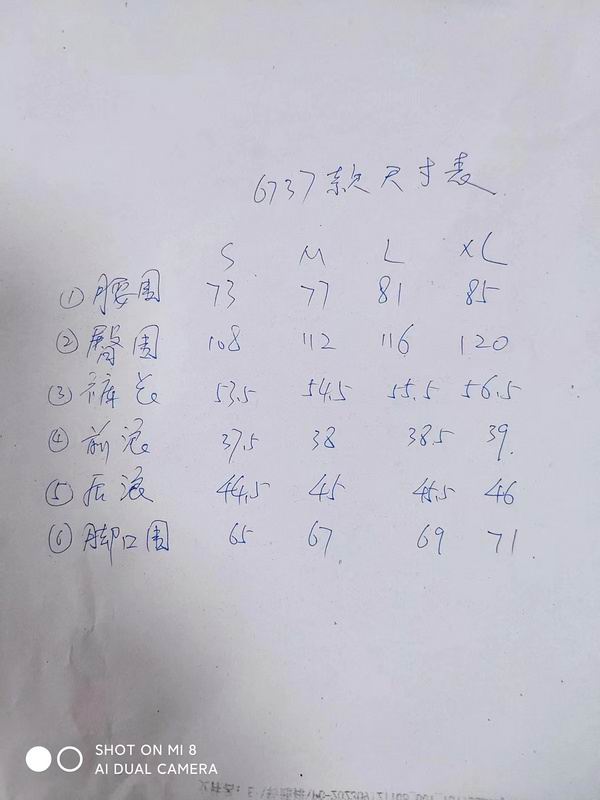 6737款尺寸表
S M L XL
①腰围 73 77 81 85
②臀围 108 112 116 120
③裤长 53.5 54.5 55.5 56.5
④前浪 37.5 38 38.5 39.
⑤后浪 44.5 45 45.5 46
⑥脚口围 65 67 69 71
SHOT ON MI 8
AI DUAL CAMERA